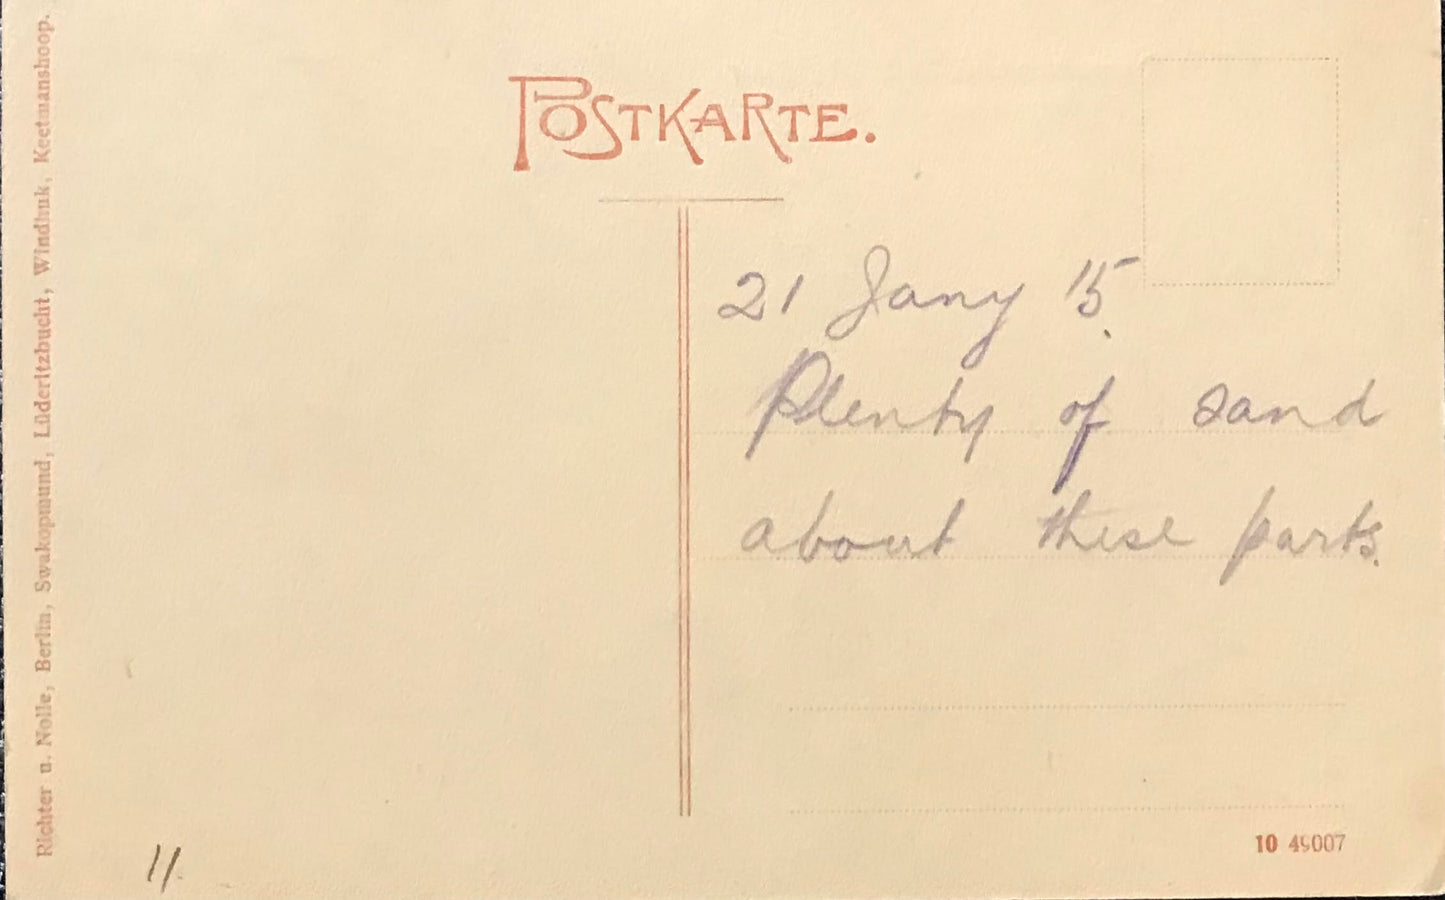 POSTKARTE.
21 Jany 15.
Plenty of sand
about these parts.
Richter u. Nolle, Berlin, Swakopmund, Lüderitzbucht, Windhuk, Keetmanshoop.
11.
10 49007